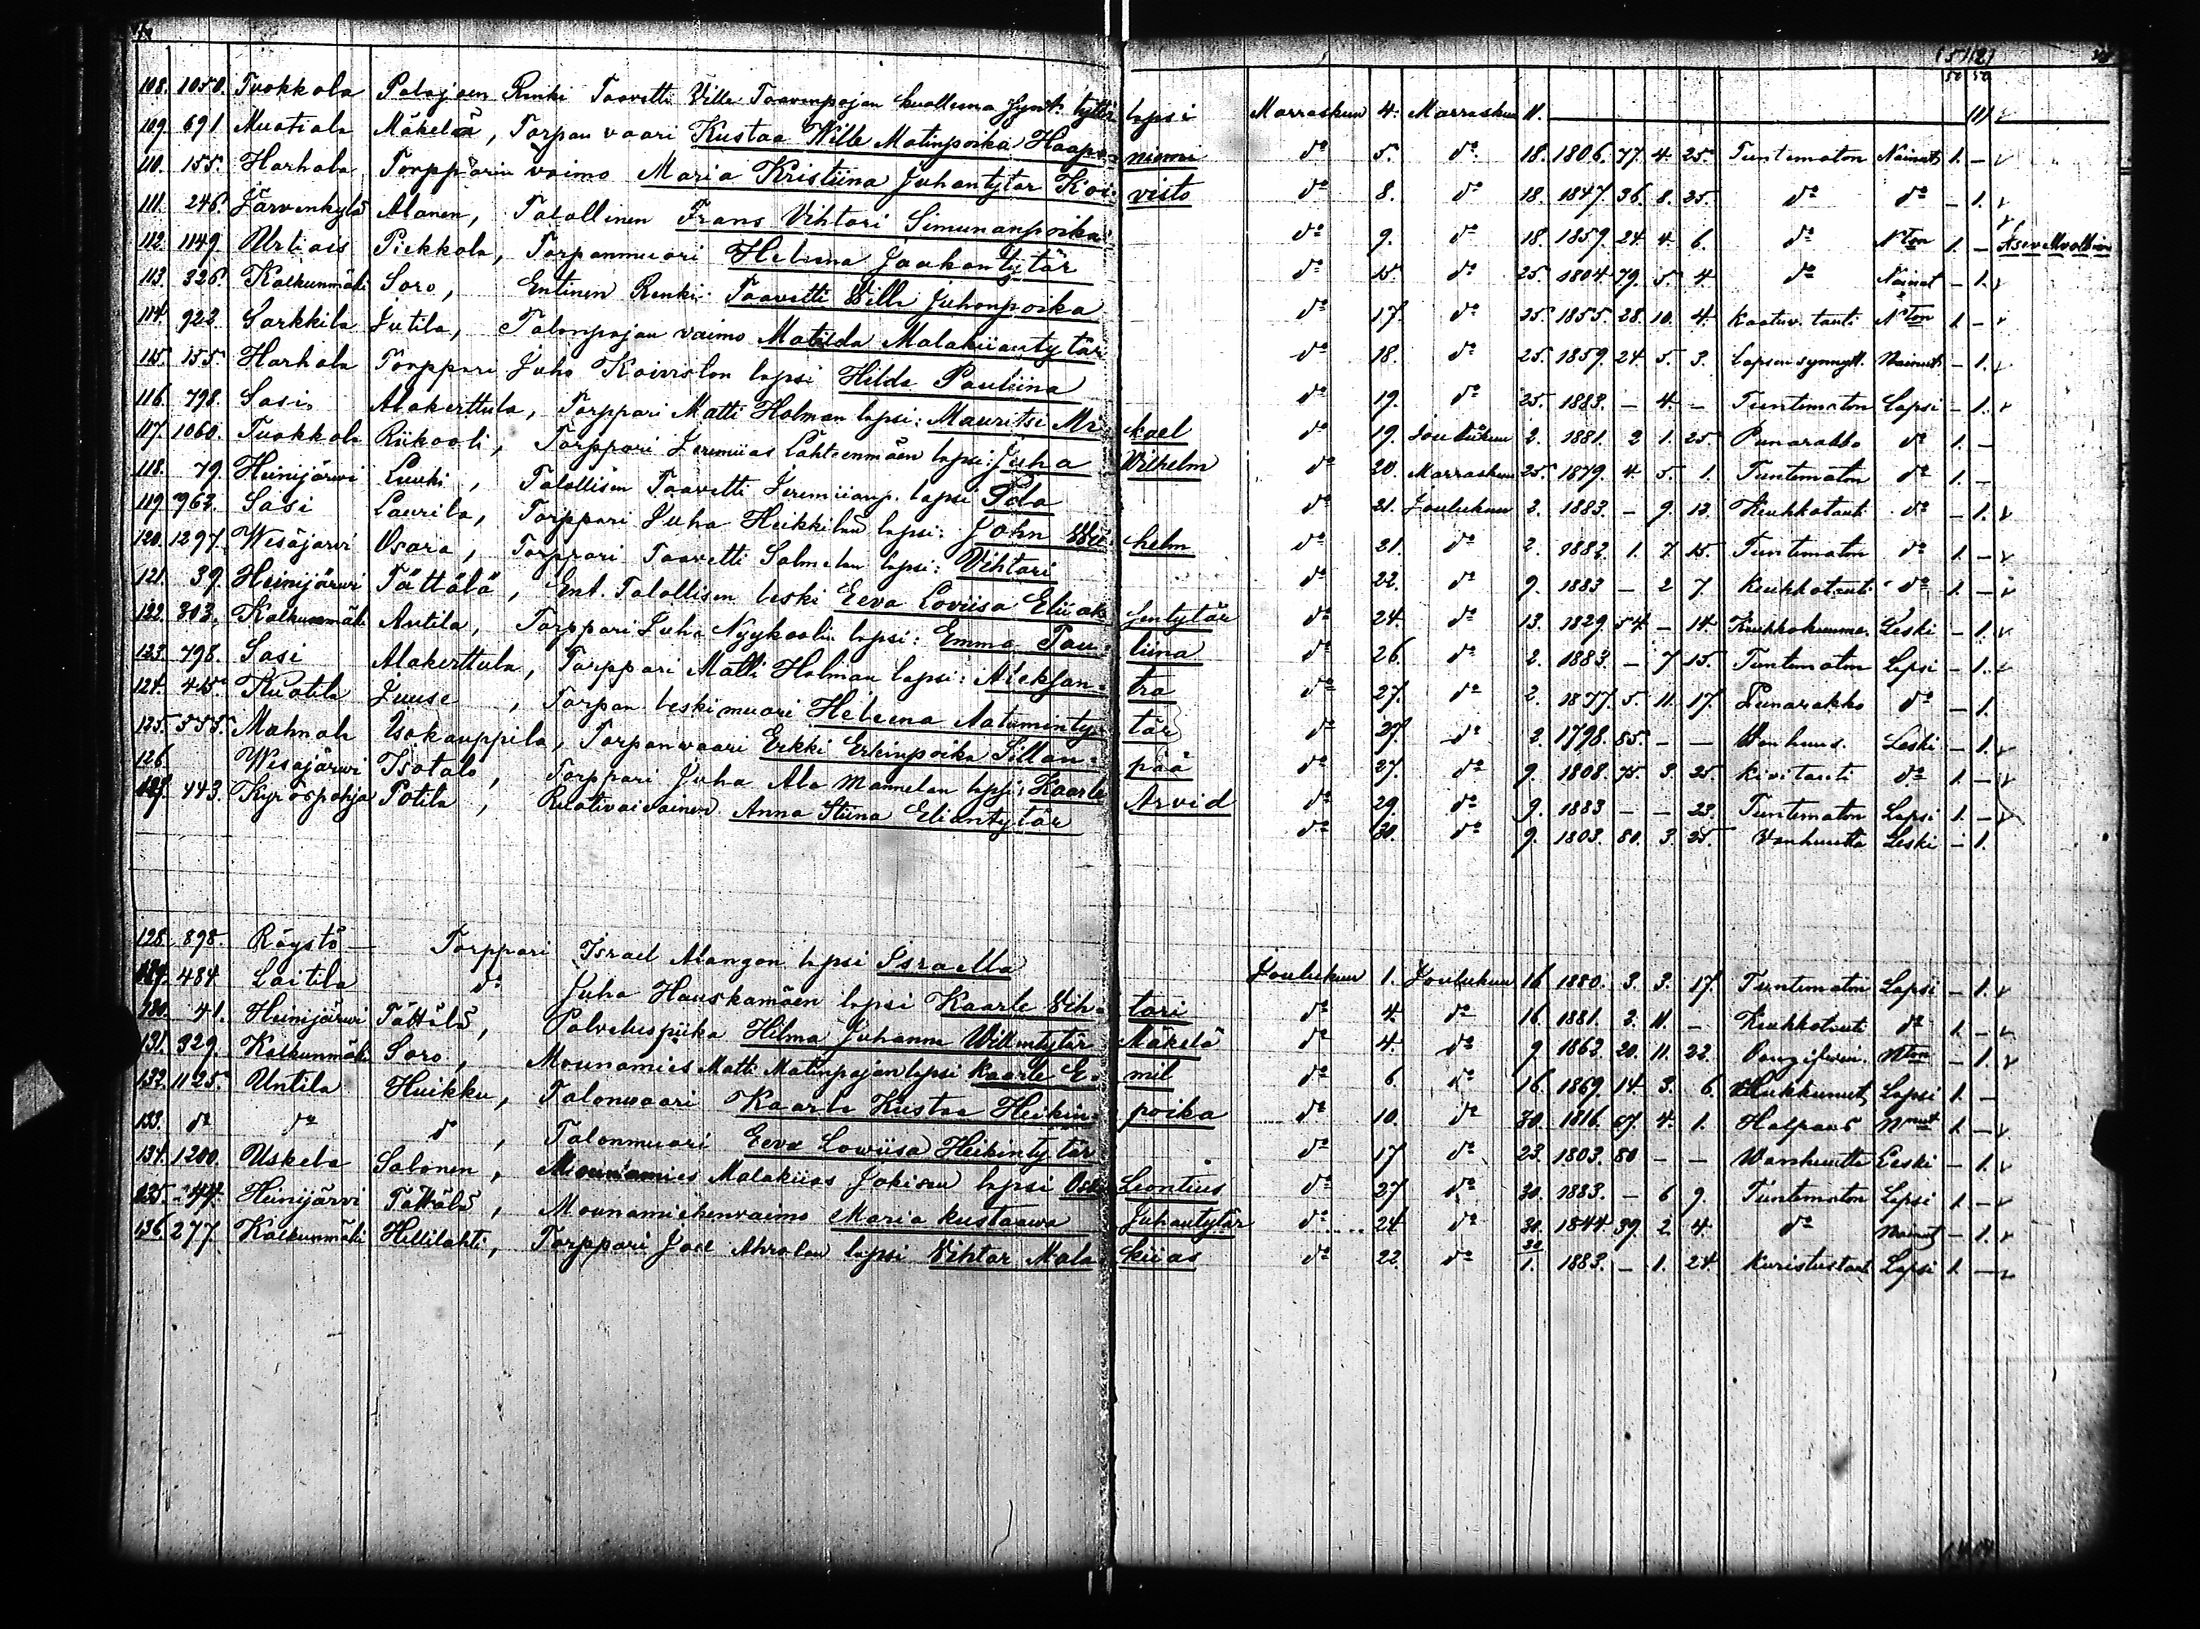 108. 1050. Tuokkola Palojoen Renki Taavetti Ville Taavinpojan kuolleena synt. tyttö lapsi Marraskuun 4. Marraskuun 11.
109. 691. Muotiala Mäkelä, Torpan vaari Kustaa Wille Matinpoika Haapaniemi do 5. do 18. 1806. 77. 4. 25. Tuntematon Nainut 1. –
110. 155. Harhala Torpparin vaimo Maria Kristiina Juhantytär Koivisto do 8. do 18. 1847. 36. 8. 25. do do – 1.
111. 246. Järvenkylä Alanen, Talollinen Frans Vihtori Simunanpoika do 9. do 18. 1859. 24. 4. 6. do Nton 1. – Asevelvollinen
112. 1149. Urtiais Piekkola, Torpanmuori Helena Jaakontytär do 15. do 25. 1804. 79. 5. 4. do Nainut – 1.
113. 326. Kalkunmäki Soro, Entinen Renki Taavetti Ville Juhonpoika do 17. do 25. 1855. 28. 10. 4. Kaatuv. tauti Nton 1. –
114. 922. Sarkkila Jutila, Talonpojan vaimo Matilda Malakiiantytär do 18. do 25. 1859. 24. 5. 3. Lapsen synnytt. Nainut – 1.
115. 155. Harhala Torppari Juho Koiviston lapsi Hilda Pauliina do 19. do 25. 1883. – 4. – Tuntematon Lapsi – 1.
116. 798. Sasi Alakerttula, Torppari Matti Holman lapsi: Mauritsi Mikael do 19. Joulukuun 2. 1881. 2 1. 25. Punarakko do 1. –
117. 1060. Tuokkola Riikooli, Torppari Jeremias Lähteenmäen lapsi: Juha Wilhelm do 20. Marraskuun 25. 1879. 4. 5. 1. Tuntematon do 1. –
118. 79. Heinijärwi Luuki, Talollisen Taavetti Jeremiianp. lapsi Ida do 21. Joulukuun 2. 1883. – 9. 12. Keuhkotauti do – 1.
119. 962. Sasi Laurila, Torppari Juha Heikkilän lapsi: John Wilhelm do 21. do 2. 1882. 1. 7. 15. Tuntematon do 1. –
120. 1297. Wesäjarvi Osara, Torppari Taavetti Salmelan lapsi: Vihtari do 22. do 9. 1883 – 2 7. Keuhkotauti do 1. –
121. 39. Heinijärwi Tättälä, Ent. Talollisen leski Eeva Loviisa Eliiaksentytär do 24. do 13. 1829. 54. – 14. Keuhkokuume Leski – 1.
122. 303. Kalkunmäki Antila, Torppari Juha Nyykoolin lapsi: Emma Pauliina do 26. do 2. 1883. – 7 15. Tuntematon Lapsi – 1.
123. 798. Sasi Alakerttula, Torppari Matti Holman lapsi: Aleksantra do 27. do 2. 1877. 5. 11. 17. Punarakko do – 1.
124. 415. Kuotila Juuse, Torpan leskimuori Heleena Aatamintytär do 27. do 2. 1798. 85. – – Vanhuus. Leski – 1.
125. 555. Mahnala Isokauppila, Torpanvaari Erkki Erkinpoika Sillanpää do 27. do 9. 1808. 75. 3. 25. kivitauti do 1. –
126. Wesajärwi Isotalo, Torppari Juha Ala Mannelan lapsi: Kaarle Arvid do 29. do 9. 1883 – – 23. Tuntematon Lapsi 1. –
127. 443. Kyröspohja Potila, Ruotivaivainen Anna Stiina Eliantytär do 30. do 9. 1803. 80. 3. 25. Vanhuutta Leski – 1.
128. 898. Röystö – Torppari Israel Alangon lapsi Israella Joulukuun 1. Joulukuun 16 1880. 3. 3. 17. Tuntematon Lapsi – 1.
129. 484 Laitila do Juha Hauskamäen lapsi Kaarle Vihtari do 4. do 16. 1881. 2. 11. – Keuhkotauti do 1. –
130. 41. Heinijärwi Tättälä, Palveluspiika Hilma Juhanna Willentytär Mäkelä do 4. do 9 1863. 20. 11. 22. Nton – 1.
131. 329. Kalkunmäki Soro, Mounamies Matti Matinpojan lapsi Kaarle Emil do 6 do 16. 1869. 14. 3. 6. Hukkunut Lapsi 1. –
132. 1125. Untila Huikku, Talonvaari Kaarle Kustaa Heikinpoika do 10. do 30. 1816. 67. 4. 1. Halpaus Nnut 1. –
133. do do do, Talonmuori Eeva Loviisa Heikintytär do 17 do 23. 1803. 80 – – Wanhuutta Leski – 1.
134. 1200. Uskela Salonen, Mounamies Malakiias Jokisen lapsi Oskar Leontius do 27 do 30. 1883. – 6 9. Tuntematon Lapsi 1. –
135. 44. Heinijärvi Tättälä, Mounamiehenvaimo Maria Kustaava Juhantytär do 24 do 30. 1844. 39. 2 4. do Nainut – 1.
136. 277. Kalkunmäki Hillilahti, Torppari Joel Ahrolan lapsi Vihtar Malakiias do 22. do 30 1. 1883. – 1. 24. Kuristustauti Lapsi 1. –